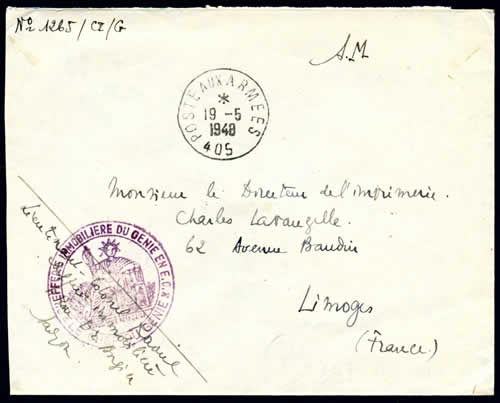 No 1265/CI/G
A.M
POSTE AUX ARMEES
*
19 -5
1948
405
Monsieur le Directeur de l'imprimerie.
Charles Lavauzelle.
62 Avenue Baudin
Limoges
(France.)
IMMOBILIERE DU GENIE EN E.C.
Lieutenant Colonel